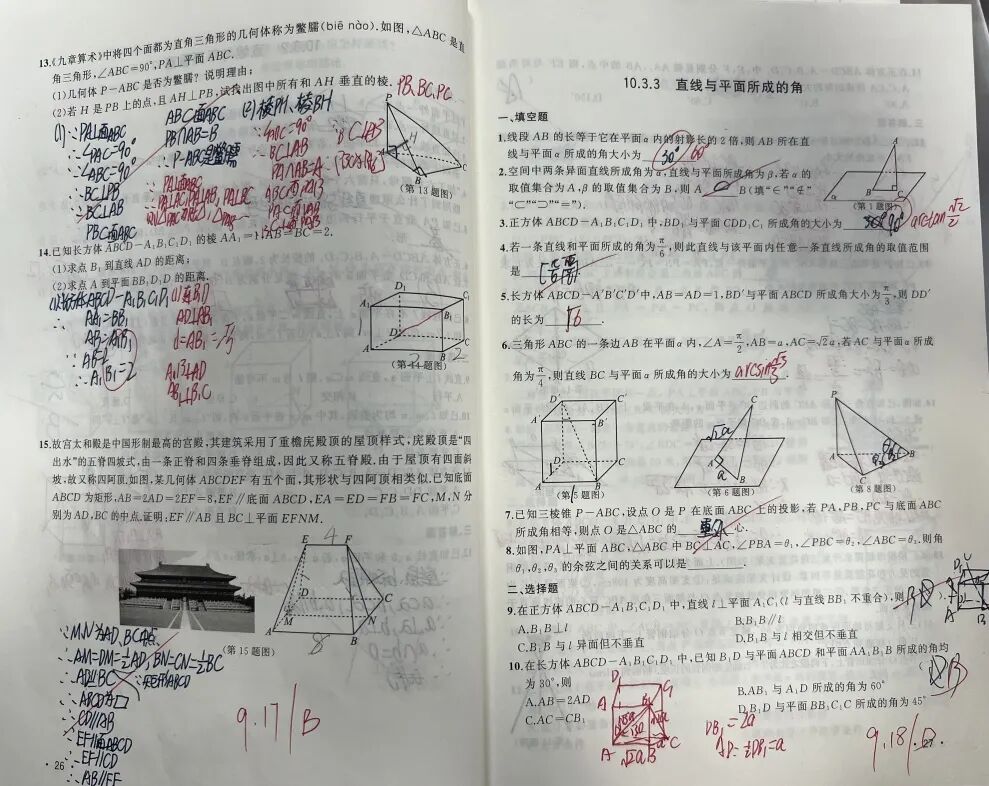 13.《九章算术》中将四个面都为直角三角形的几何体称为鳖臑(biē nào).如图,△ABC 是直
角三角形,∠ABC=90°,PA⊥平面 ABC.
(1)几何体 P-ABC 是否为鳖臑?说明理由;
(2)若 H 是 PB 上的点,且 AH⊥PB,试找出图中所有和 AH 垂直的棱.
PB,BC,PC
(1) ∵PA⊥面ABC
∴∠PAC=90°
∠ABC=90°
∴BC⊥PB
∴BC⊥AB
PBC面ABC
ABC面ABC
PB∩AB=B
(2)棱PH、棱BH
∠ABC=90°
BC⊥AB
PA∩AB=A
P
H
A
C
B
(第 13 题图)
14.已知长方体 ABCD-A₁B₁C₁D₁ 的棱 AA₁=1,AB=BC=2.
(1)求点 B₁ 到直线 AD 的距离;
(2)求点 A 到平面 BB₁D₁D 的距离.
AA₁=BB₁
AB=A₁B₁
AB=2
∴A₁B₁=2
(1)连B₁D
AD⊥AB₁
d=AB₁=√5
A₁B⊥AD
AB₁⊥B₁C
D₁
C₁
A₁
B₁
D
C
A
B
1
2
2
(第 14 题图)
15.故宫太和殿是中国形制最高的宫殿,其建筑采用了重檐庑殿顶的屋顶样式,庑殿顶是“四
出水”的五脊四坡式,由一条正脊和四条垂脊组成,因此又称五脊殿.由于屋顶有四面斜
坡,故又称四阿顶.如图,某几何体 ABCDEF 有五个面,其形状与四阿顶相类似.已知底面
ABCD 为矩形,AB=2AD=2EF=8,EF∥底面 ABCD,EA=ED=FB=FC,M,N 分
别为 AD,BC 的中点.证明:EF∥AB 且 BC⊥平面 EFNM.
E 4 F
D
C
M
N
A
B
8
(第 15 题图)
∵M,N为AD,BC中点
∴AM=DM=½AD,BN=CN=½BC
∴AD∥BC
∴ABCD为□
∴CD∥AB
∵EF∥面ABCD
∴EF∥CD
∴AB∥EF
9.17/B
· 26
10.3.3 直线与平面所成的角
一、填空题
1.线段 AB 的长等于它在平面 α 内的射影长的 2 倍,则 AB 所在直
线与平面 α 所成的角大小为 30° 60°
2.空间中两条异面直线所成角为 α,直线与平面所成角为 β,若 α 的
取值集合为 A,β 的取值集合为 B,则 A B(填“∈”“∉”
“⊂”“⊃”“=”).
A
B
C
(第 1 题图)
3.正方体 ABCD-A₁B₁C₁D₁ 中,BD₁ 与平面 CDD₁C₁ 所成角的大小为 90° arctan√2/2
4.若一条直线和平面所成的角为 π/6,则此直线与该平面内任意一条直线所成角的取值范围
是
5.长方体 ABCD-A'B'C'D' 中,AB=AD=1,BD' 与平面 ABCD 所成角大小为 π/3,则 DD'
的长为 √6 .
6.三角形 ABC 的一条边 AB 在平面 α 内,∠A=π/2,AB=a,AC=√2a,若 AC 与平面 α 所成
角为 π/4,则直线 BC 与平面 α 所成角的大小为 arcsin√3/3 .
D'
C'
A'
B'
D
C
A
B
1
1
(第 5 题图)
C
√2a
A
a
B
(第 6 题图)
P
A
B
C
(第 8 题图)
7.已知三棱锥 P-ABC,设点 O 是 P 在底面 ABC 上的投影,若 PA,PB,PC 与底面 ABC
所成角相等,则点 O 是△ABC 的 心.
8.如图,PA⊥平面 ABC,△ABC 中 BC⊥AC,∠PBA=θ₁,∠PBC=θ₂,∠ABC=θ₃.则角
θ₁,θ₂,θ₃ 的余弦之间的关系可以是 .
二、选择题
9.在正方体 ABCD-A₁B₁C₁D₁ 中,直线 l⊥平面 A₁C₁(l 与直线 BB₁ 不重合),则 B
A.B₁B⊥l
B.B₁B∥l
C.B₁B 与 l 异面但不垂直
D.B₁B 与 l 相交但不垂直
10.在长方体 ABCD-A₁B₁C₁D₁ 中,已知 B₁D 与平面 ABCD 和平面 AA₁B₁B 所成的角均
为 30°,则 ( B
A.AB=2AD
B.AB₁ 与 A₁D 所成的角为 60°
C.AC=CB₁
D.B₁D 与平面 BB₁C₁C 所成的角为 45°
√2a
DB₁=2a
AD=½DB₁=a
9.18/B
27 ·